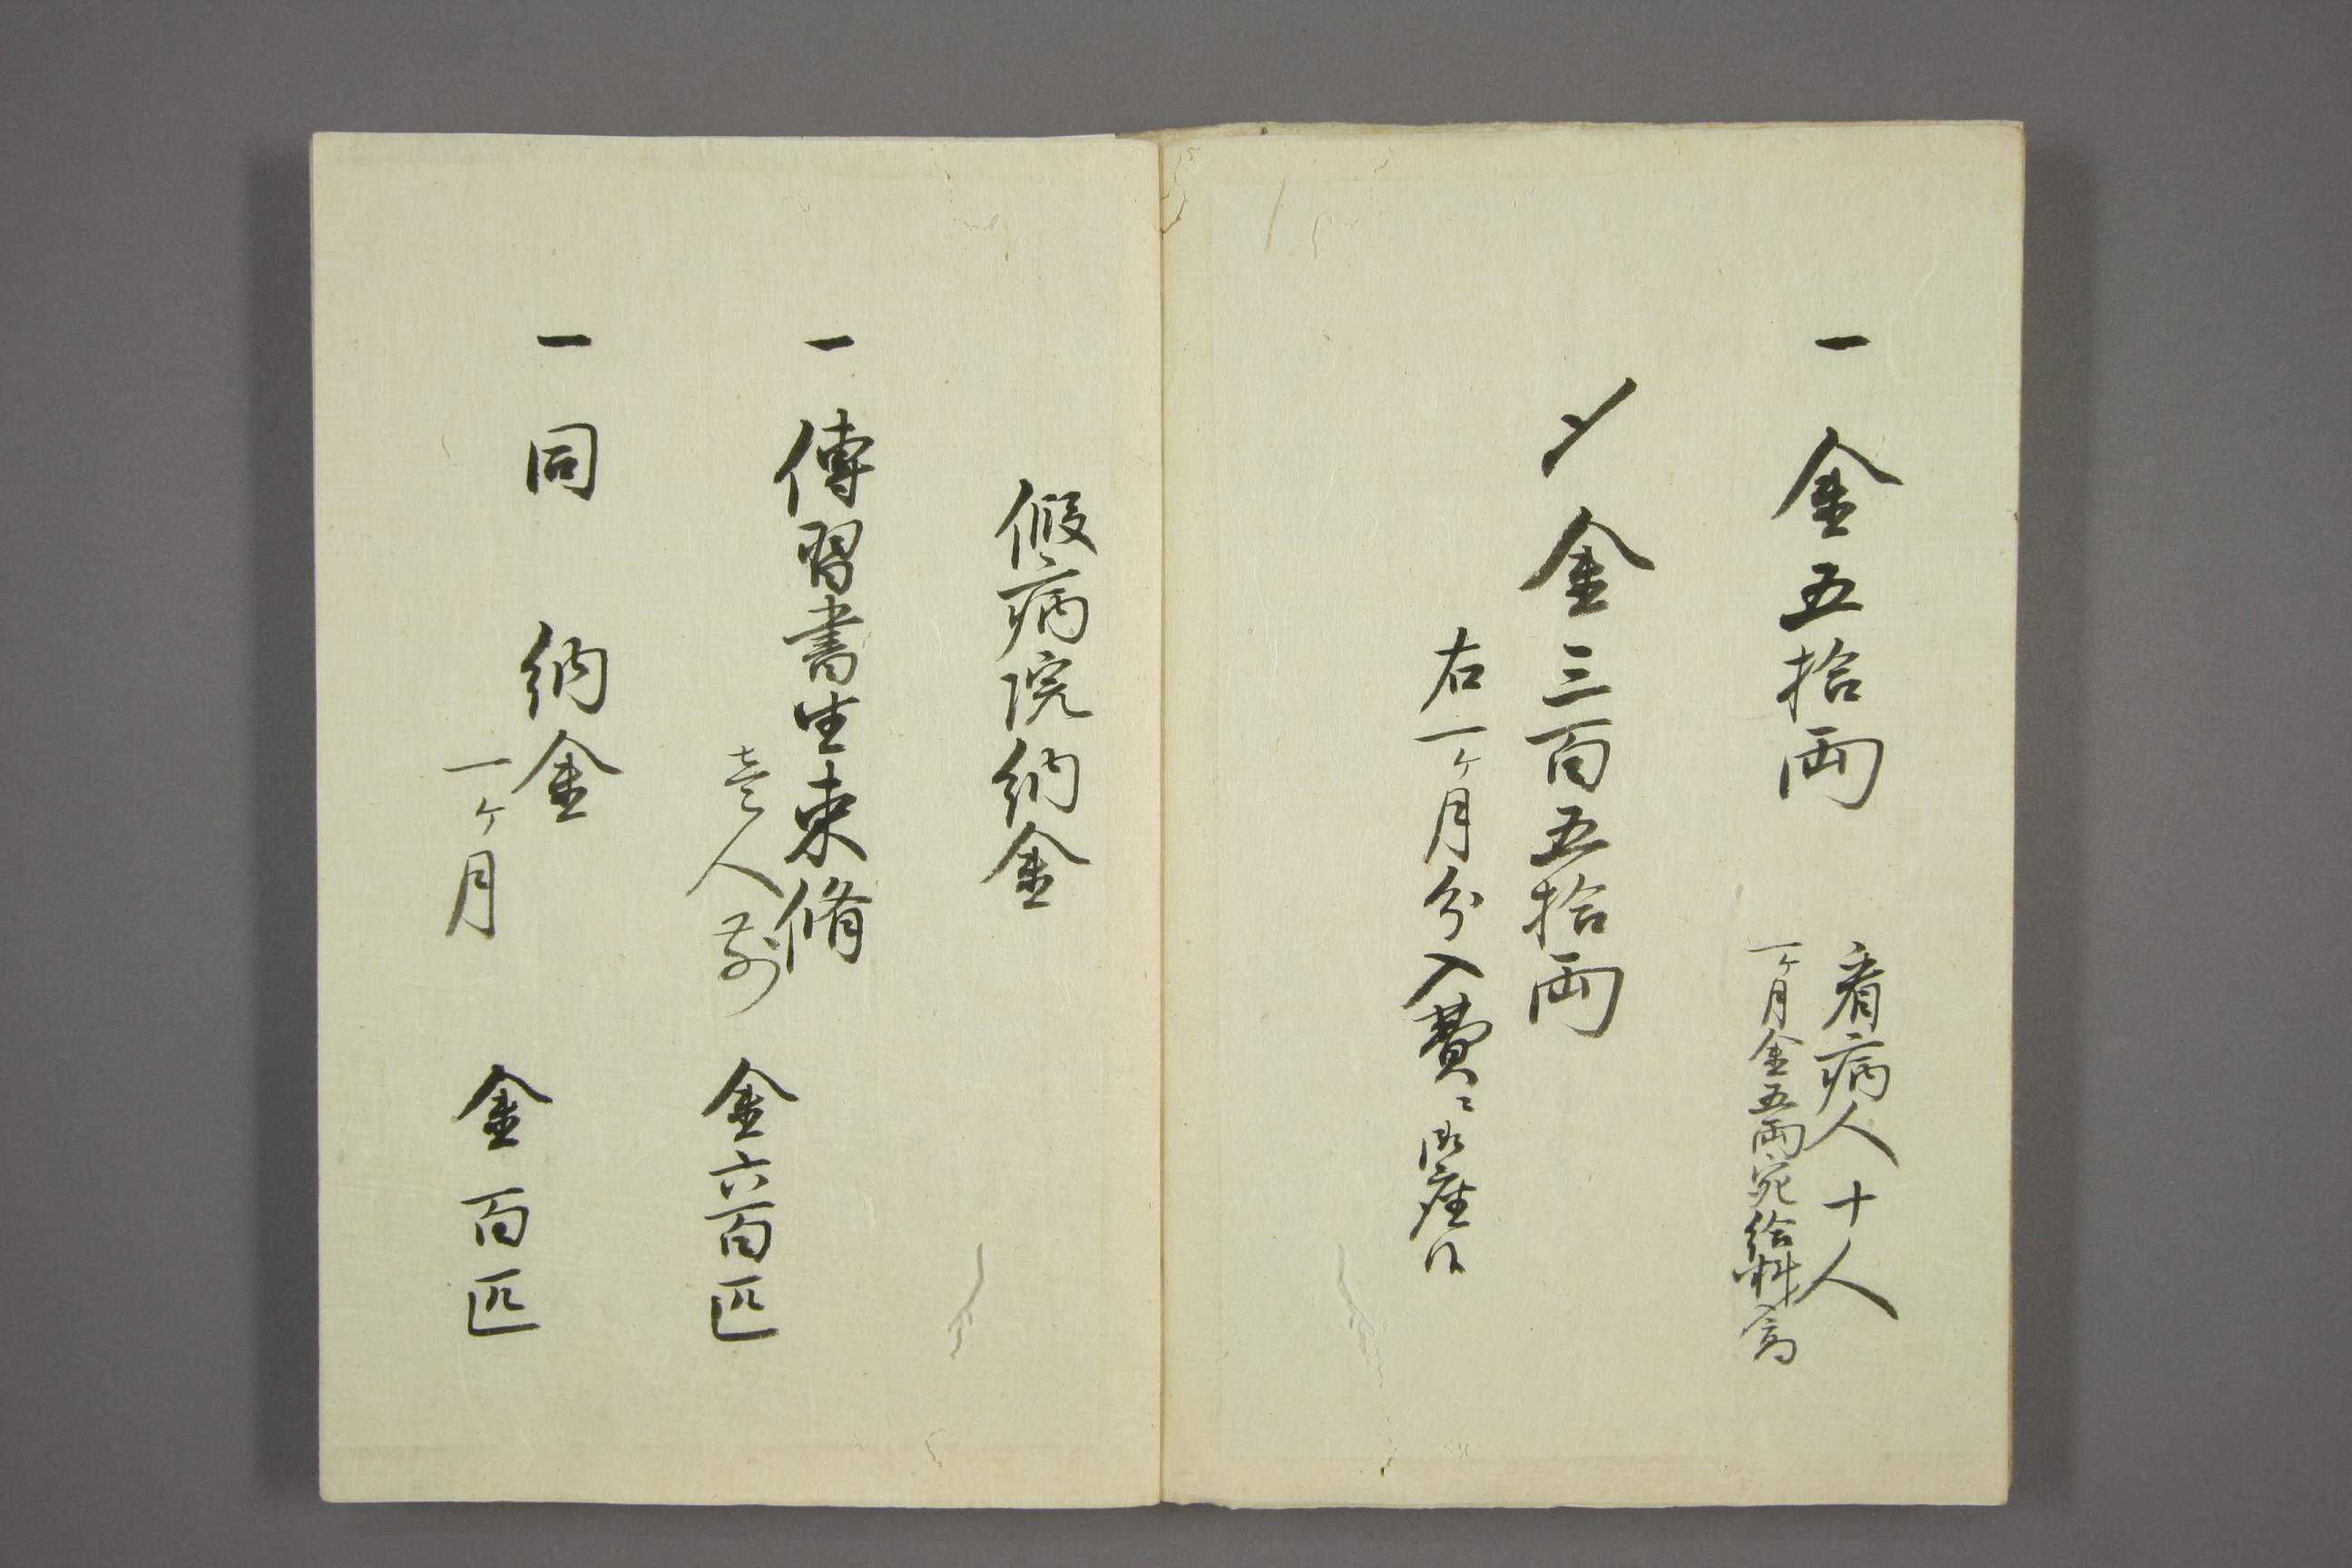 一 金五拾両
看病人十人
一ヶ月金五両宛給料高
〆 金三百五拾両
右一ヶ月分入費ニ御座候
假病院納金
一 傳習書生束脩
壱人前
金六百匹
一 同 納金
一ヶ月
金百匹